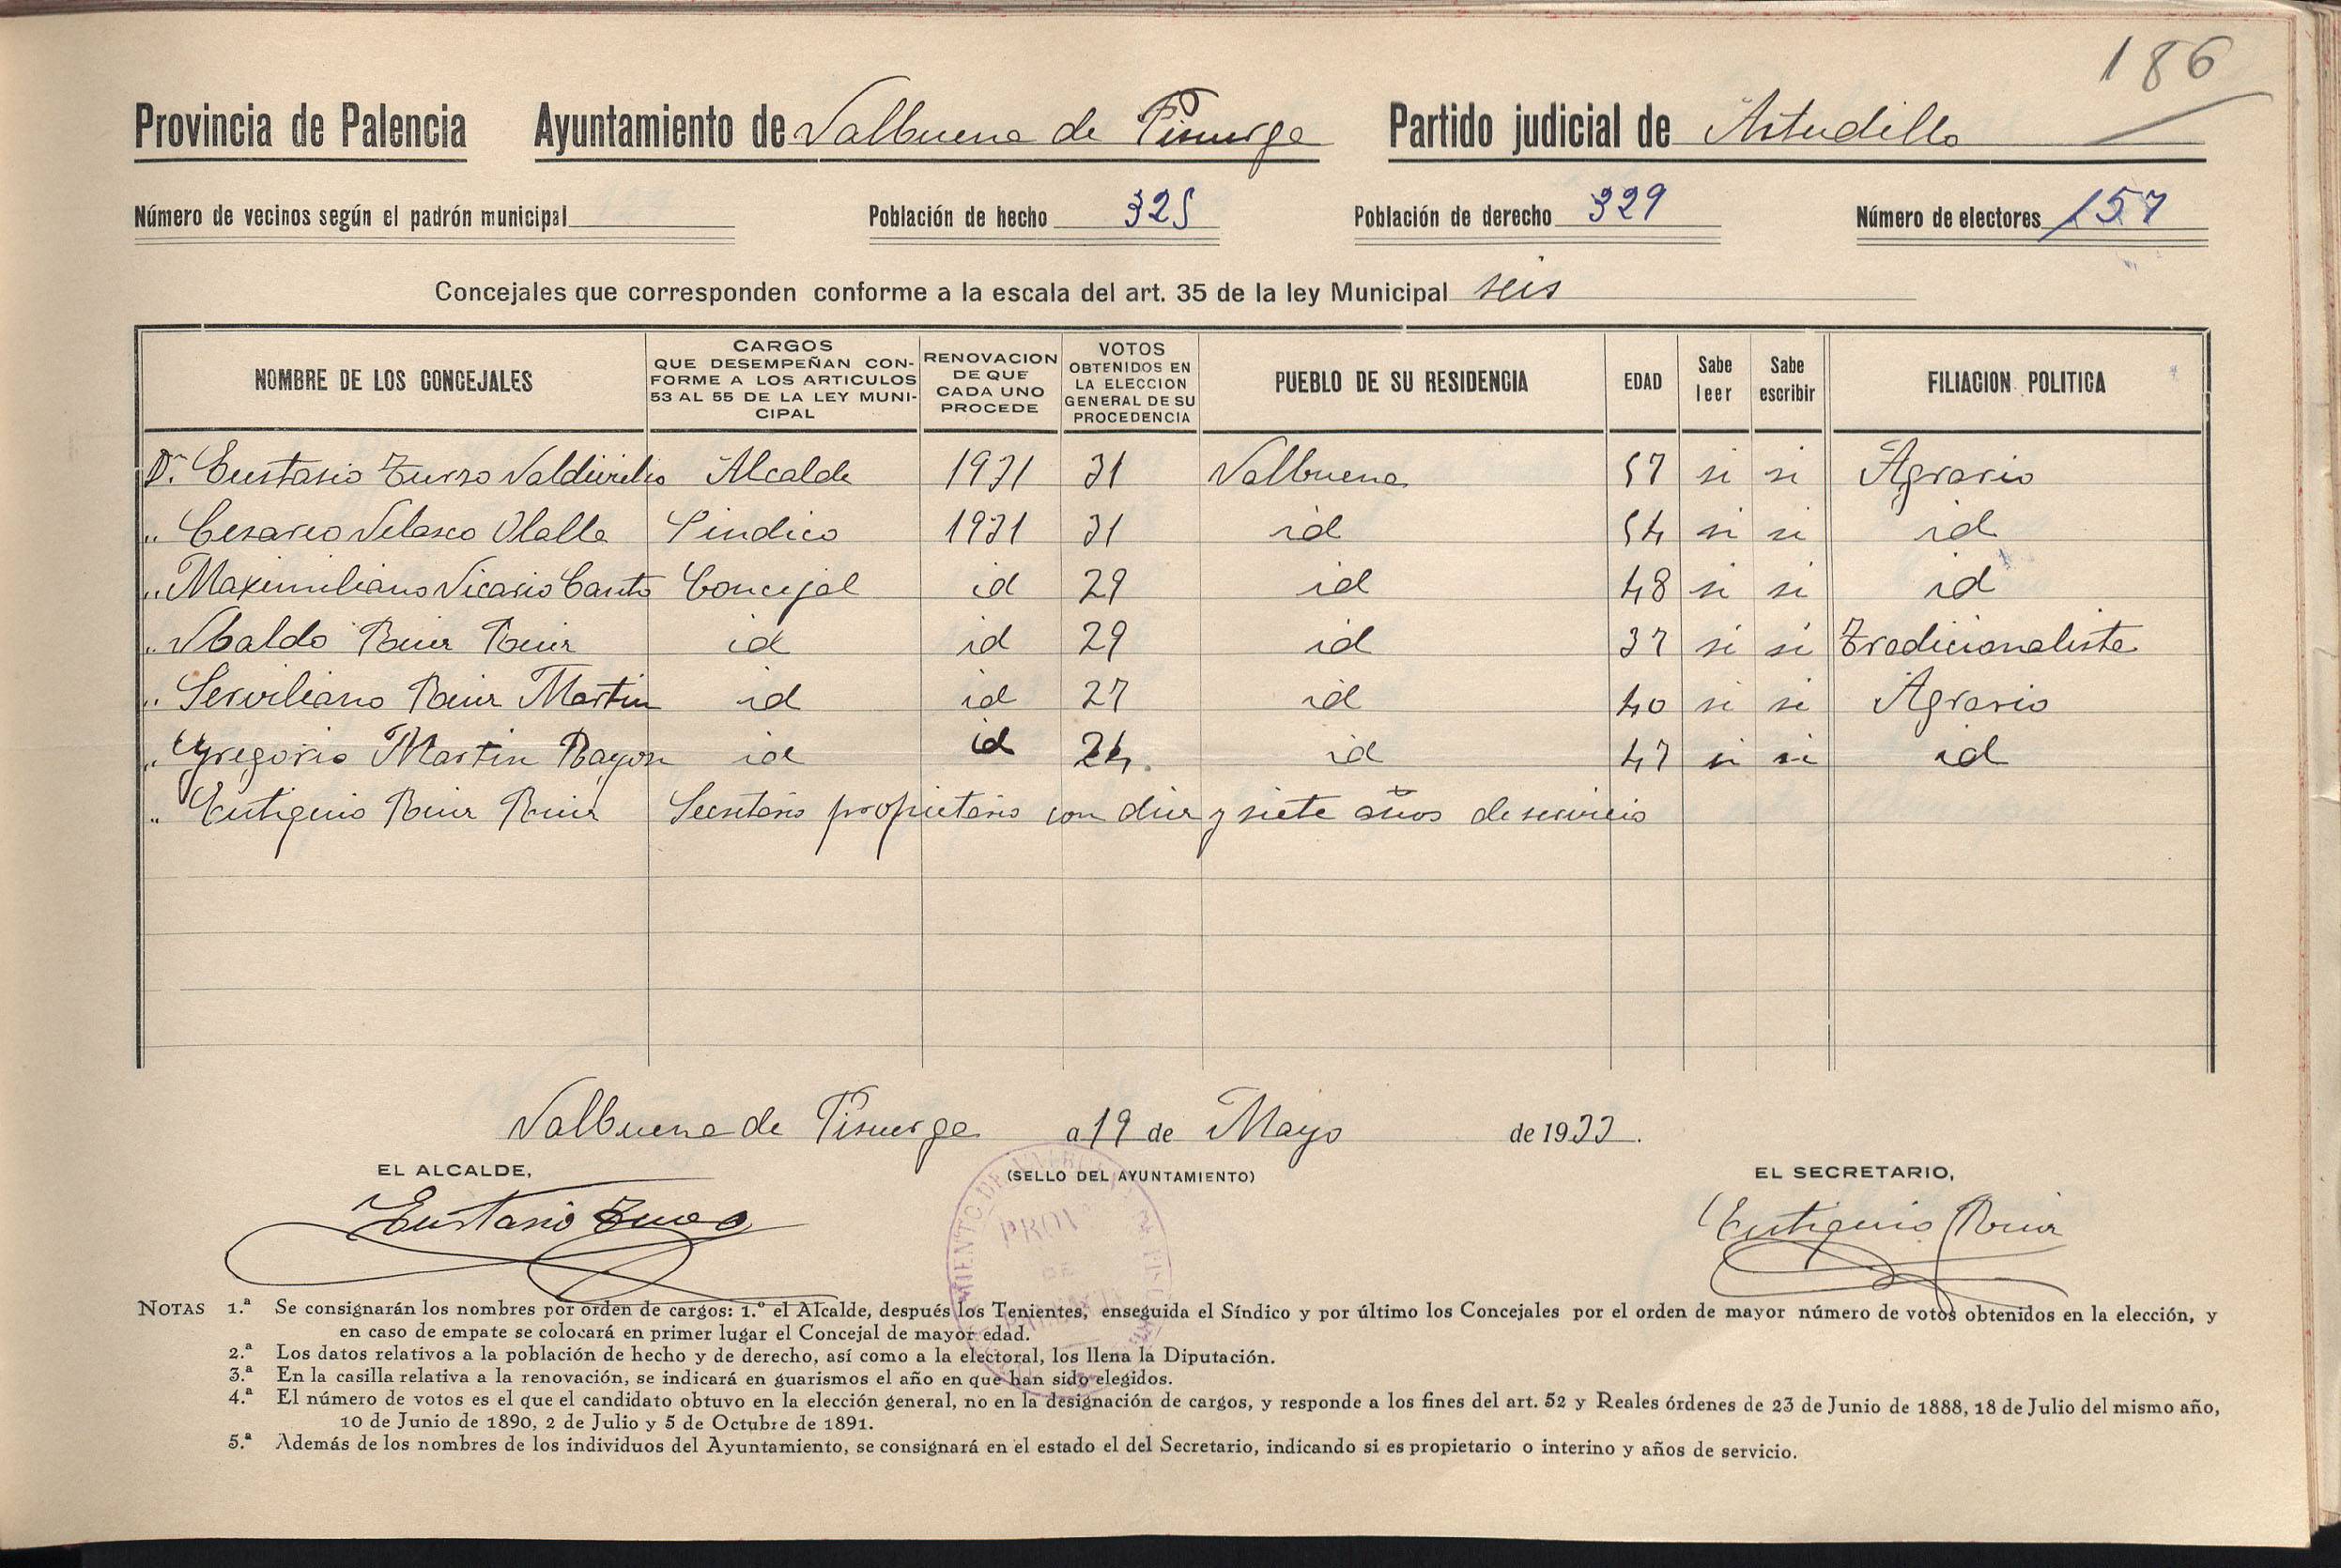 186
Provincia de Palencia Ayuntamiento de Valbuena de Pisuerga Partido judicial de Astudillo
Número de vecinos según el padrón municipal Población de hecho 325 Población de derecho 329 Número de electores 157
Concejales que corresponden conforme a la escala del art. 35 de la ley Municipal seis
NOMBRE DE LOS CONCEJALES
CARGOS
QUE DESEMPEÑAN CON-
FORME A LOS ARTICULOS
53 AL 55 DE LA LEY MUNI-
CIPAL
RENOVACION
DE QUE
CADA UNO
PROCEDE
VOTOS
OBTENIDOS EN
LA ELECCION
GENERAL DE SU
PROCEDENCIA
PUEBLO DE SU RESIDENCIA
EDAD
Sabe
leer
Sabe
escribir
FILIACION POLITICA
Dn. Eustasio Zurro Valdivielso Alcalde 1931 31 Valbuena 57 si si Agrario
" Cesareo Velasco Olalla Sindico 1931 31 id 54 si si id
" Maximiliano Vicario Canto Concejal id 29 id 48 si si id
" Ubaldo Ruiz Ruiz id id 29 id 37 si si Tradicionalista
" Serviliano Ruiz Martin id id 27 id 40 si si Agrario
" Gregorio Martin Rayon id id 24. id 47 si si id
" Eutiquio Ruiz Ruiz Secretario propietario con diez y siete años de servicio
Valbuena de Pisuerga a 19 de Mayo de 1933.
EL ALCALDE, (SELLO DEL AYUNTAMIENTO) EL SECRETARIO,
Eustasio Zurro Eutiquio Ruiz
PROVª
DE
NOTAS 1.ª Se consignarán los nombres por orden de cargos: 1.º el Alcalde, después los Tenientes, enseguida el Síndico y por último los Concejales por el orden de mayor número de votos obtenidos en la elección, y
en caso de empate se colocará en primer lugar el Concejal de mayor edad.
2.ª Los datos relativos a la población de hecho y de derecho, así como a la electoral, los llena la Diputación.
3.ª En la casilla relativa a la renovación, se indicará en guarismos el año en que han sido elegidos.
4.ª El número de votos es el que el candidato obtuvo en la elección general, no en la designación de cargos, y responde a los fines del art. 52 y Reales órdenes de 23 de Junio de 1888, 18 de Julio del mismo año,
10 de Junio de 1890, 2 de Julio y 5 de Octubre de 1891.
5.ª Además de los nombres de los individuos del Ayuntamiento, se consignará en el estado el del Secretario, indicando si es propietario o interino y años de servicio.